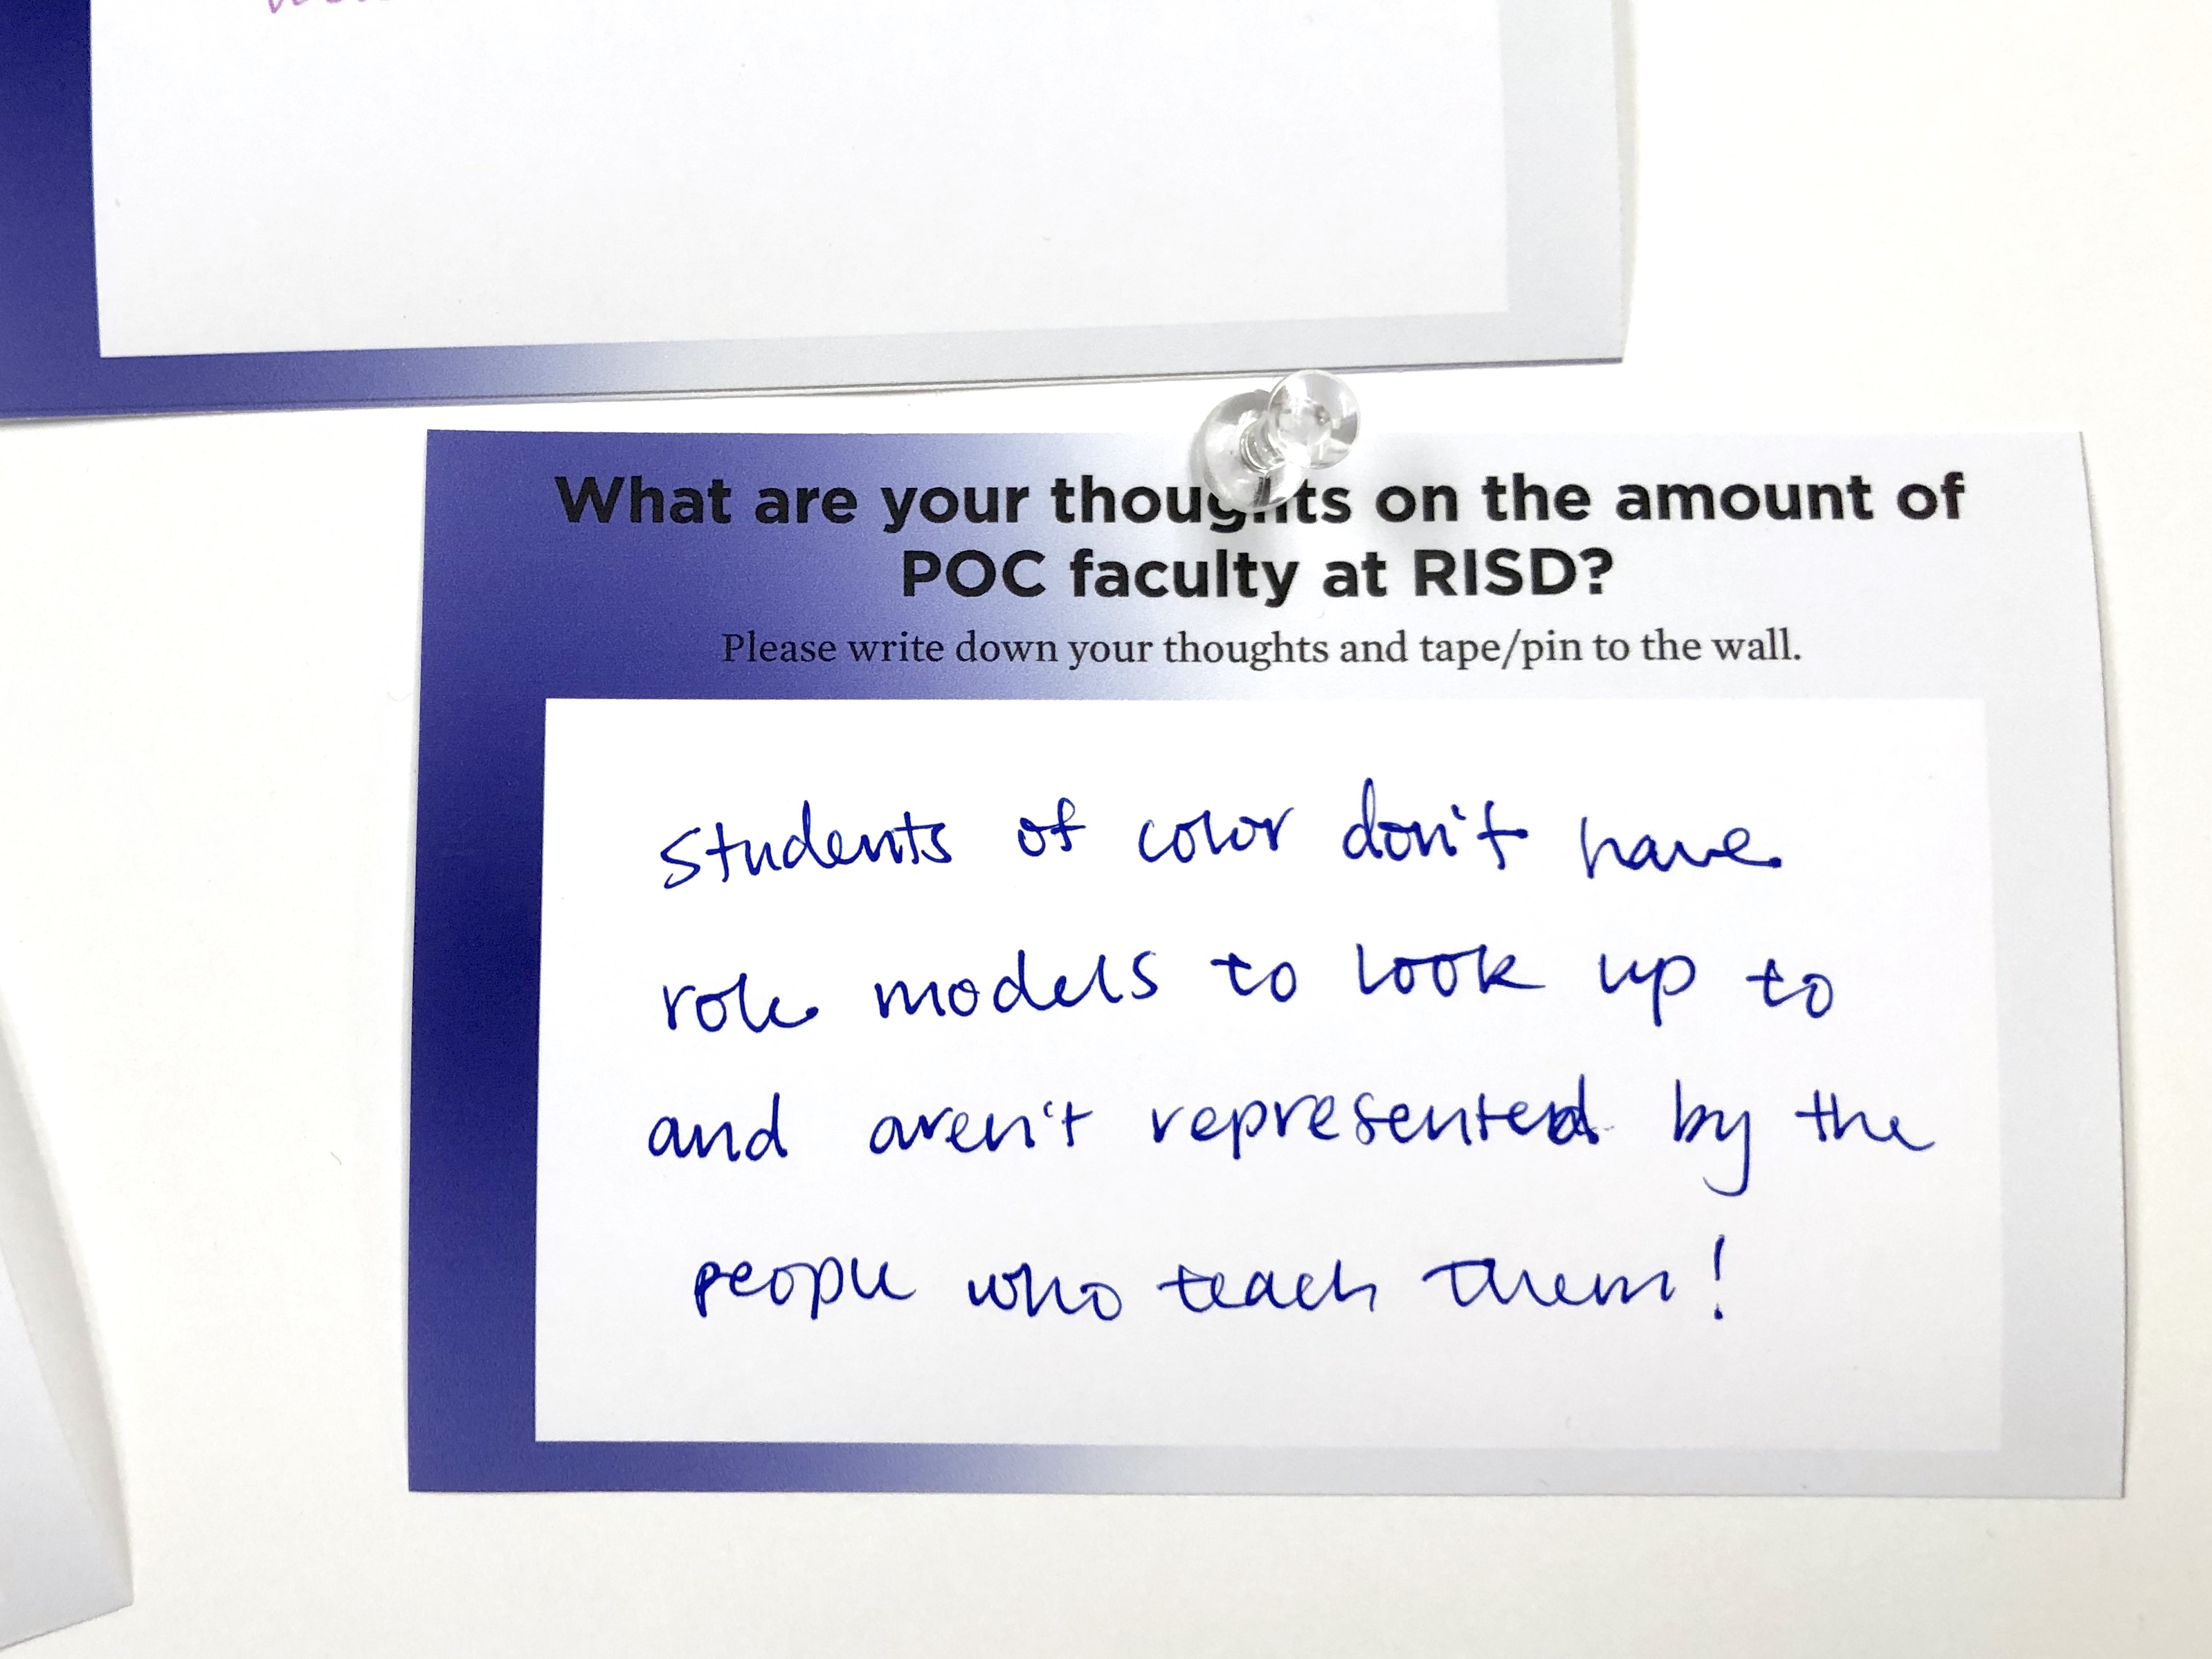 What are your thoughts on the amount of
POC faculty at RISD?
Please write down your thoughts and tape/pin to the wall.
students of color don't have
role models to look up to
and aren't represented by the
people who teach them!